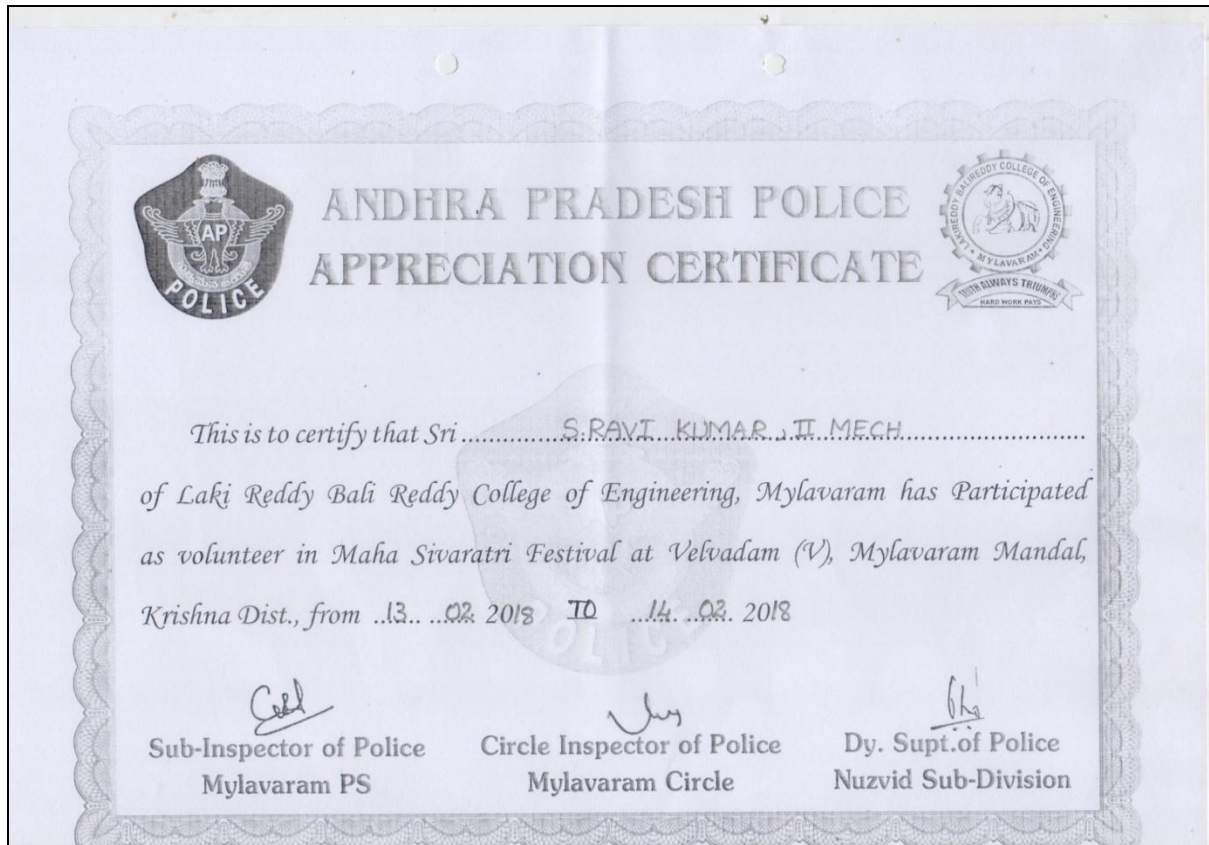 ANDHRA PRADESH POLICE
APPRECIATION CERTIFICATE
AP
POLICE
LAKIREDDY BALIREDDY COLLEGE OF ENGINEERING
MYLAVARAM
TRUTH ALWAYS TRIUMPHS
HARD WORK PAYS
This is to certify that Sri S.RAVI KUMAR, II MECH
of Laki Reddy Bali Reddy College of Engineering, Mylavaram has Participated
as volunteer in Maha Sivaratri Festival at Velvadam (V), Mylavaram Mandal,
Krishna Dist., from 13 02 2018 TO 14 02 2018
POLICE
Sub-Inspector of Police
Mylavaram PS
Circle Inspector of Police
Mylavaram Circle
Dy. Supt.of Police
Nuzvid Sub-Division